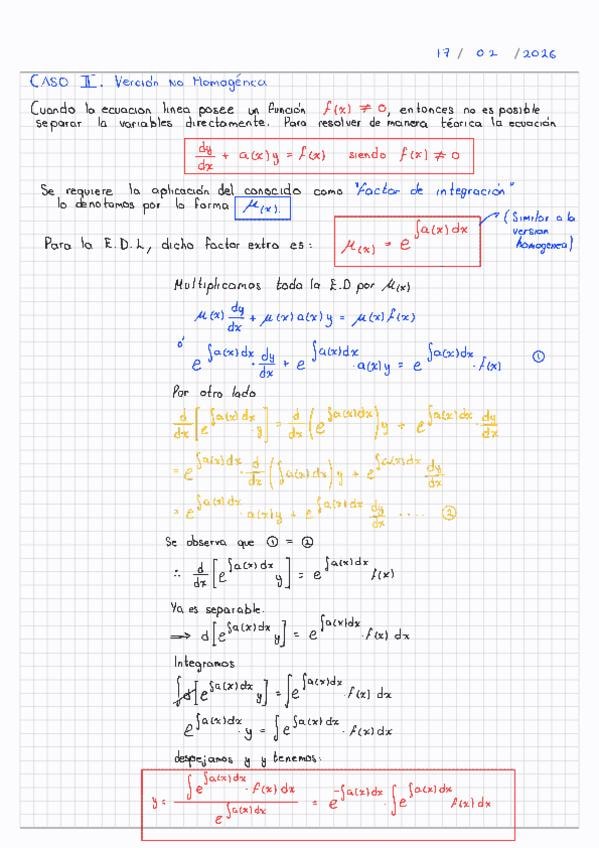 17 / 02 / 2026
CASO II. Verción No Homogénea
Cuando la ecuacion linea posee un función f(x) ≠ 0, entonces no es posible
separar la variables directamente. Para resolver de manera téorica la ecuación
dy/dx + a(x)y = f(x) siendo f(x) ≠ 0
Se requiere la aplicación del conocido como "factor de integración"
lo denotamos por la forma μ(x).
Para la E.D.L, dicho factor extra es: μ(x) = e^{∫a(x)dx}
(Similar a la
version
homogenea)
Multiplicamos toda la E.D por μ(x)
μ(x) dy/dx + μ(x) a(x)y = μ(x) f(x)
ó
e^{∫a(x)dx} · dy/dx + e^{∫a(x)dx} · a(x)y = e^{∫a(x)dx} · f(x) ①
Por otro lado
d/dx [e^{∫a(x)dx} · y] = d/dx (e^{∫a(x)dx})y + e^{∫a(x)dx} · dy/dx
= e^{∫a(x)dx} · d/dx (∫a(x)dx) y + e^{∫a(x)dx} dy/dx
= e^{∫a(x)dx} · a(x)y + e^{∫a(x)dx} dy/dx .... ②
Se observa que ① = ②
∴ d/dx [e^{∫a(x)dx} y] = e^{∫a(x)dx} f(x)
Ya es separable.
⟹ d[e^{∫a(x)dx} y] = e^{∫a(x)dx} · f(x) dx
Integramos
∫d[e^{∫a(x)dx} y] = ∫e^{∫a(x)dx} · f(x) dx
e^{∫a(x)dx} · y = ∫e^{∫a(x)dx} · f(x)dx
despejamos y y tenemos:
y = ∫e^{∫a(x)dx} · f(x)dx / e^{∫a(x)dx} = e^{-∫a(x)dx} · ∫e^{∫a(x)dx} f(x)dx